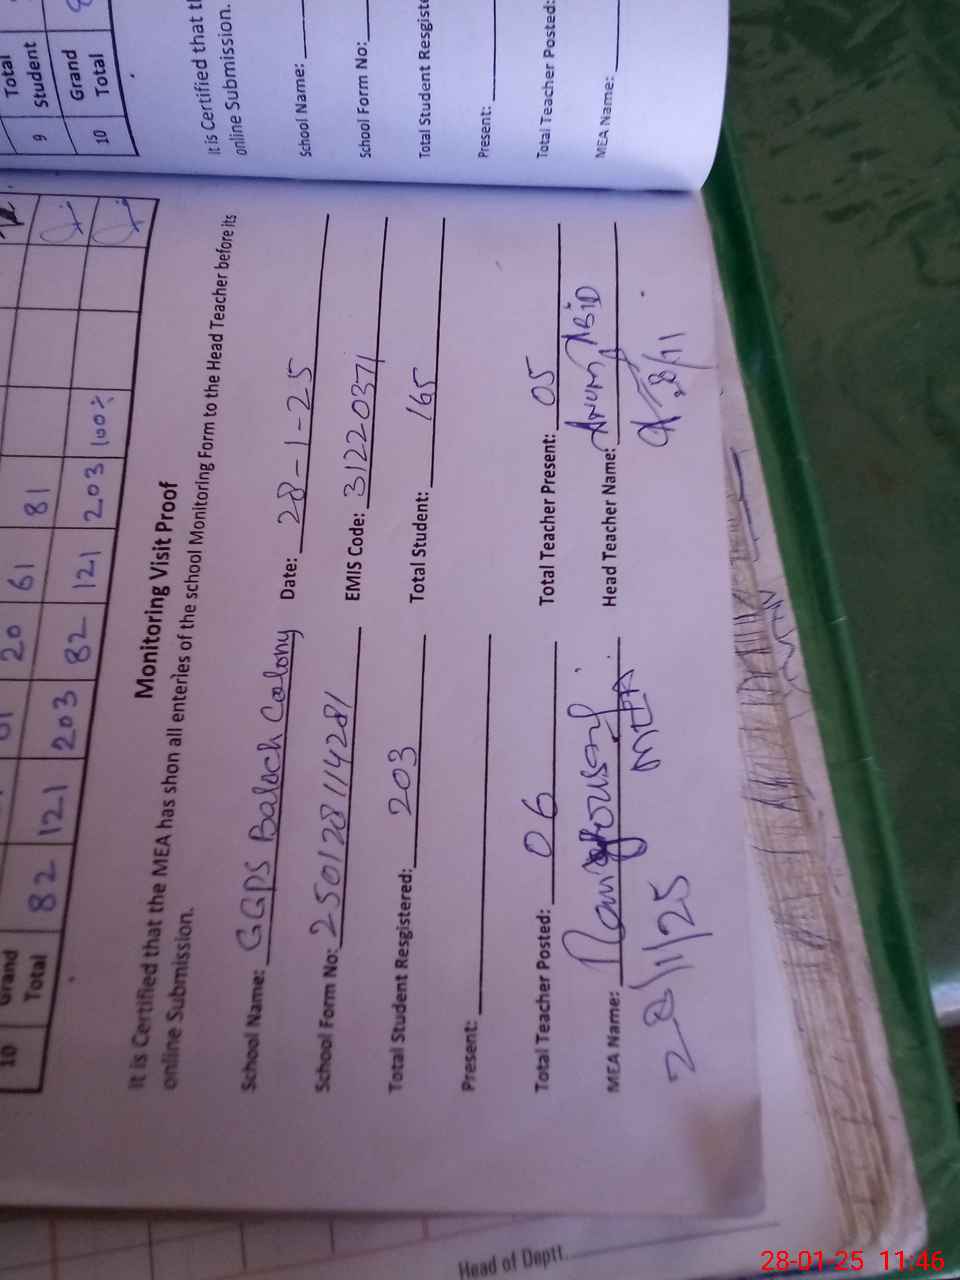 10 Grand Total 82 121 203 82 121 203 100%
01 20 61 81
Monitoring Visit Proof
It is Certified that the MEA has shon all enteries of the school Monitoring Form to the Head Teacher before its
online Submission.
School Name: GGPS Baloch Colony Date: 28-1-25
School Form No: 250128114281 EMIS Code: 31220371
Total Student Resgistered: 203 Total Student: 165
Present:
Total Teacher Posted: 06 Total Teacher Present: 05
MEA Name: Head Teacher Name: Anum Abid
MEA
28/1/25
9 Total Student
10 Grand Total
It is Certified that th
online Submission.
School Name:
School Form No:
Total Student Resgiste
Present:
Total Teacher Posted:
MEA Name:
Head of Deptt.
28-01-25 11:46